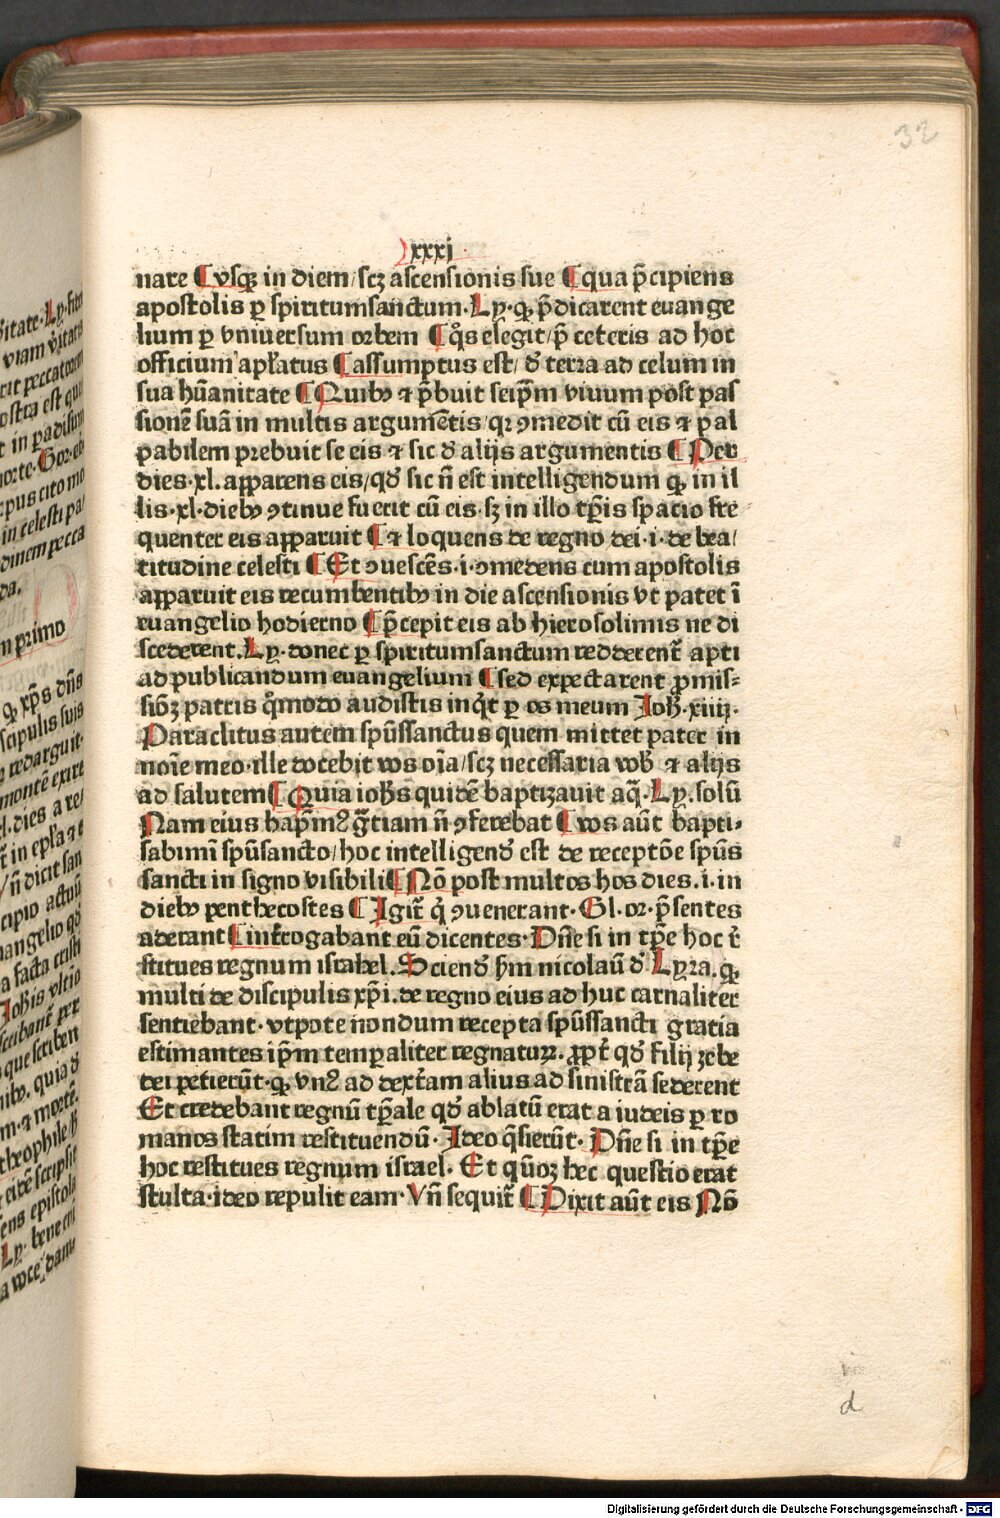 32
xxxi
nare ¶ vsqꝫ in diem/scꝫ ascensionis sue ¶ qua p̄cipiens
apostolis ꝑ spiritumsanctum. Ly. ꝙ p̄dicarent euange
lium ꝑ vniuersum orbem ¶ q̊s elegit/p̄ ceteris ad hoc
officium apl̄atus ¶ assumptus est/ đ terra ad celum in
sua hūanitate ¶ Quibꝰ ⁊ p̄buit seip̄m viuum post pas
sionē suā in multis argumētis/qꝛ ꝯmedit cū eis ⁊ pal
pabilem prebuit se eis ⁊ sic đ alijs argumentis ¶ Per
dies.xl. apparens eis/qđ sic n̄ est intelligendum ꝙ in il
lis.xl.diebꝰ ꝯtinue fuerit cū eis.sꝫ in illo tp̄is spacio fre
quenter eis apparuit ¶ ⁊ loquens de regno dei.i.de bea/
titudine celesti ¶ Et ꝯuescēs.i.ꝯmedens cum apostolis
apparuit eis recumbentibꝰ in die ascensionis vt patet ī
euangelio hodierno ¶ p̄cepit eis ab hierosolimis ne di
scederent. Ly. donec ꝑ spiritumsanctum redderent᷑ apti
ad publicandum euangelium ¶ sed expectarent ꝓmis-
siōꝫ patris q̊modo audistis inq̇t ꝑ os meum Joh̄.xiiij.
Paraclitus autem spūssanctus quem mittet pater in
noīe meo.ille docebit vos oīa/scꝫ necessaria vob̄ ⁊ alijs
ad salutem ¶ Quia ioh̄s quidē baptizauit aq̄. Ly. solū
Nam eius bap̄mꝰ gr̄tiam n̄ ꝯferebat ¶ vos aūt bapti-
sabimī spūsancto/hoc intelligenđ est de receptōe spūs
sancti in signo visibili ¶ Nō post multos hos dies.i.in
diebꝰ penthecostes ¶ Igit᷑ q̇ ꝯuenerant. Gl. or. p̄sentes
aderant ¶ int̄rogabant eū dicentes. Dn̄e si in tp̄e hoc r̄
stitues regnum israhel. Sciend̄ h̄m nicolaū đ Lyra. ꝙ
multi de discipulis xp̄i.de regno eius ad huc carnaliter
sentiebant.vtpote nondum recepta spūssancti gratia
estimantes ip̄m temꝑaliter regnaturꝫ. ꝓpt̄ qđ filij zebe
dei petierūt.ꝙ vnꝰ ad dext̄am alius ad sinistrā sederent
Et credebant regnū tp̄ale qđ ablatū erat a iudeis ꝑ ro
manos statim restituendū. Ideo q̄sierūt. Dn̄e si in tp̄e
hoc restitues regnum israel. Et qūoꝫ hec questio erat
stulta.ideo repulit eam. Vn̄ sequit᷑ ¶ Dixit aūt eis Nō
d
Digitalisierung gefördert durch die Deutsche Forschungsgemeinschaft - DFG